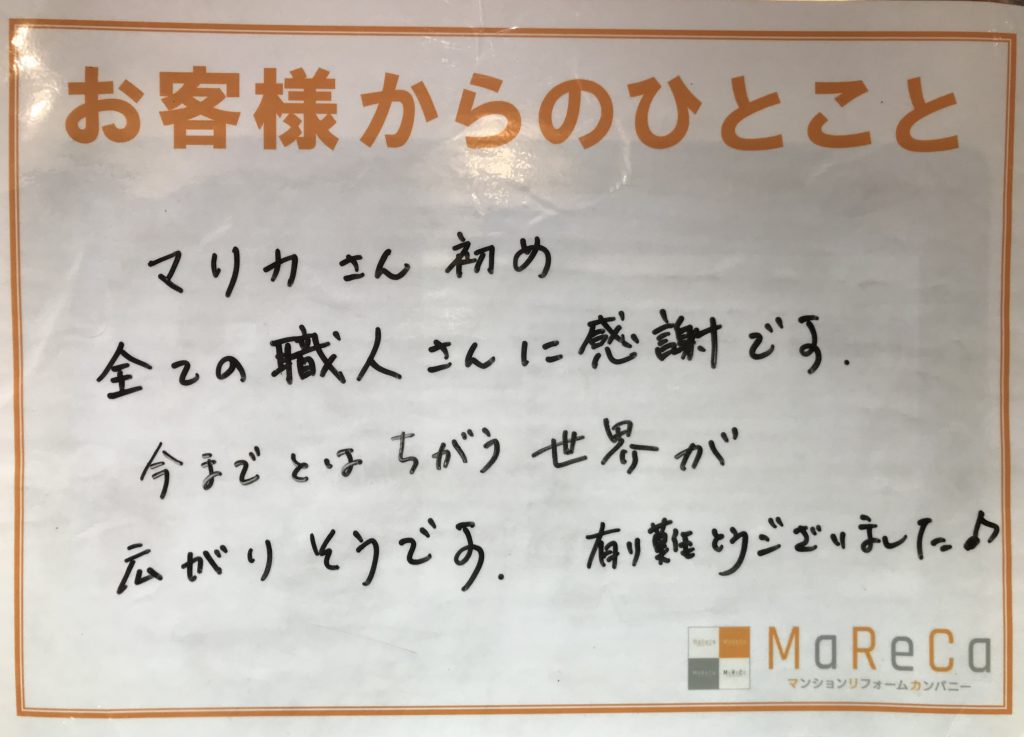 お客様からのひとこと
マリカさん初め
全ての職人さんに感謝です.
今までとはちがう世界が
広がりそうです. 有り難とうございました♪
MaReCa
マンションリフォームカンパニー